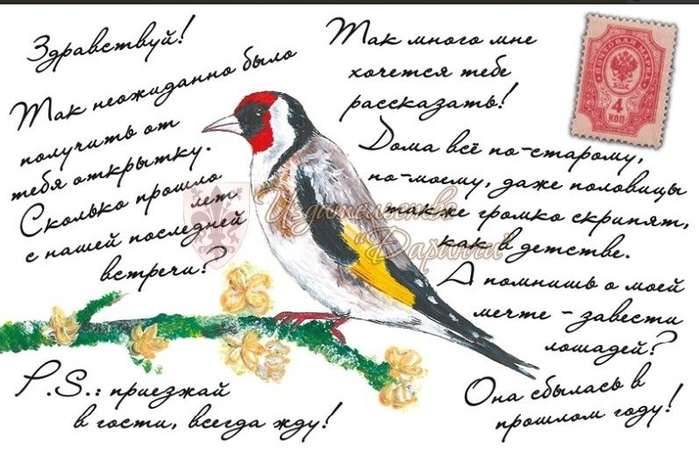 Здравствуй!
Так неожиданно было
получить от
тебя открытку.
Сколько прошло
лет
с нашей последней
встречи?
Так много мне
хочется тебе
рассказать!
Дома всё по-старому,
по-моему, даже половицы
также громко скрипят,
как в детстве.
А помнишь о моей
мечте - завести
лошадей?
Она сбылась в
прошлом году!
P.S.: приезжай
в гости, всегда жду!
ПОЧТОВАЯ МАРКА
4
КОП
Издательство
"Дарини"